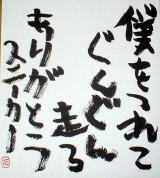 僕をつれて
ぐんぐん
走る
ありがとう
スニーカー